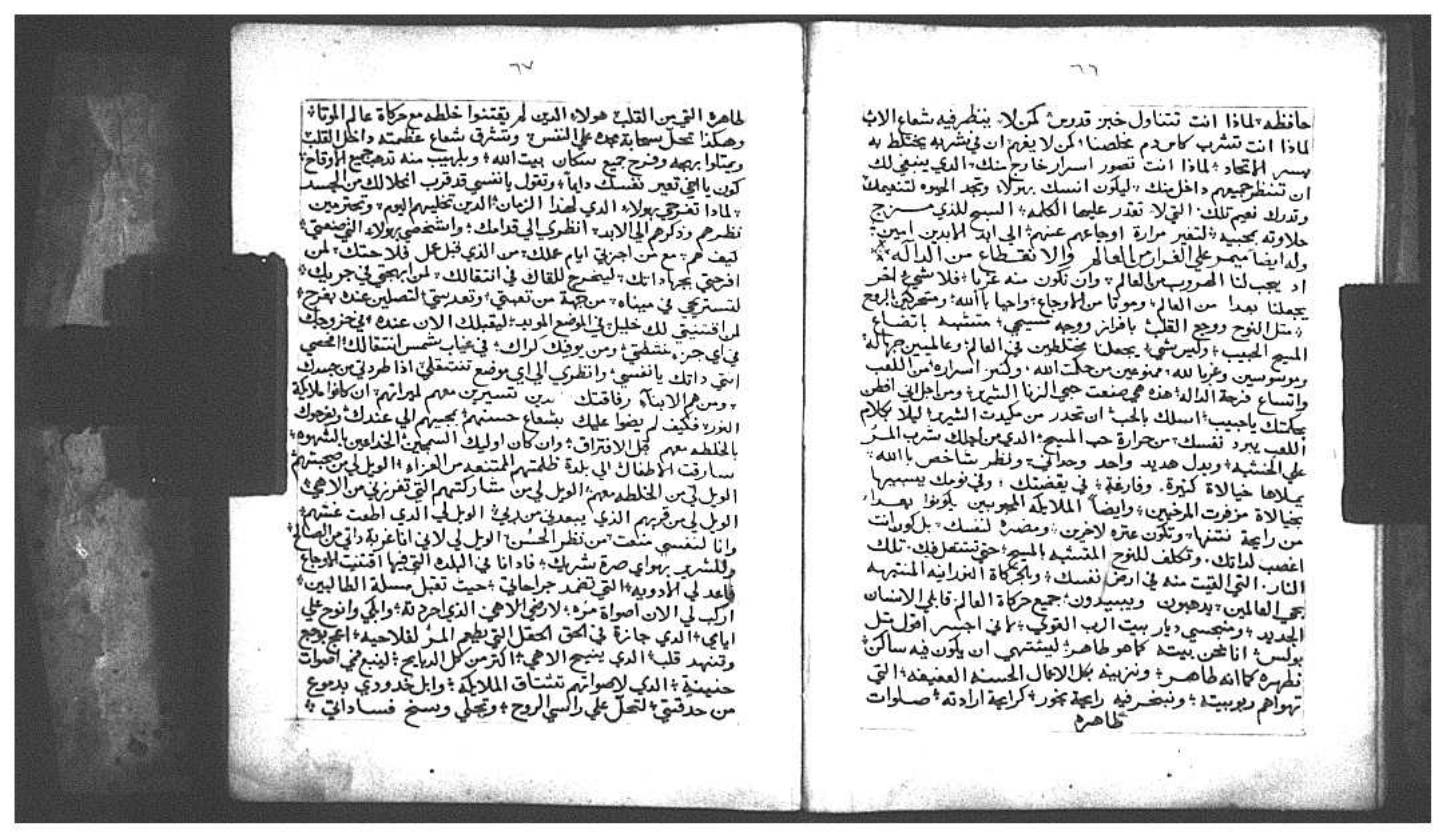 ٦٦
حافظه لماذا انت تتناول خبز قدوس لمن لا ينظر فيه شعاع الاب
لماذا انت تشرب كاس دم مخلصنا لمن لا يفهم ان في شربه يختلط به
بسر الاتحاد لماذا انت تصور اسرار خارج منك الذي ينبغي لك
ان تنظر جميعهم داخل منك ليكون انسك بهولا وتجد الحيوه لتنعيمك
وتدرك نعيم تلك التي لا تقدر عليها الكلمه السبح للذي مزج
حلاوته بمحبيه لتغير مرارة اوجاعهم عنهم الى ابد الابدين امين
وله ايضا ميمر على الفرار من العالم والانقطاع من الداله
اد يجب لنا الهروب من العالم وان نكون منه غربا فلا شي اخر
يجعلنا بعدا من العالم وموتا من الاوجاع واحيا بالله ومتحركين بالروح
مثل النوح ووجع القلب بافراز ووجه مسيحي متشبه باتضاع
المسيح الحبيب وليس شي يجعلنا مختلطين في العالم وعالميين جهاله
وموسوسين وغربا لله ممنوعين من حكمت الله وكنز اسراره من اللعب
واتساع فرجة الداله هذه هي صنعت محبي الزنا الشرير ومن اجل اني افطن
بحكمتك ياحبيب اسلك بالحب ان تحدر من مكيدت الشرير ليلا بكلام
اللعب يبرد نفسك من حرارة حب المسيح الذي من اجلك شرب المر
على الخشبه وبدل هديد واحد وحداني ونظر شاخص بالله
يملاها خيالاة كثيرة وفارغة في يقضتك وفي نومك يسبيها
بخيالاة مزفرت المرخيين وايضا الملايكه المحبوبين يكونوا بعدا
من رايحة نتنها وتكون عتره لاخرين ومضره لنفسك بل كون انت
اغصب لداتك وتكلف للنوح المتشبه بالمسيح حتى تشتعل فيك تلك
النار التي القيت منه في ارض نفسك وبالحركاة النورانيه المتنبهه
محبي العالمين يدهبون ويبيدون جميع حركاة العالم قاتلي الانسان
الجديد ومنجسي ديار بيت الرب القوي لاني اجسر اقول مثل
بولس اننا نحن بيته كما هو طاهر ليشتهي ان يكون فيه ساكن
نطهره كما انه طاهر ونزينه بكل الاعمال الحسنه العفيفه التي
تهواهم ربوبيته ونبخر فيه رايحة بخور كرايحة ارادته صلوات
طاهره
٦٧
طاهرة التي من القلب هولاء الدين لم يقتنوا خلطه مع حركاة عالم الموتا
وهكذا تحل سحابة مجده على النفس وتشرق شعاع عظمته داخل القلب
ويمتلوا بهجه وفرح جميع سكان بيت الله وبلهيب منه تدهب جميع الاوقاح
كون يا اخي تعير نفسك دايما وتقول يا نفسي قد قرب انحلالك من الجسد
لماذا تفرحي بهولاء الذي لهذا الزمان الدين تخليهم اليوم وتحترمين
نظرهم وذكرهم الى الابد انظري الى قدامك واشخصي بهولاء التي صنعتي
كيف هم مع من اجزتي ايام عملك من الذي قبل عمل فلاحتك لمن
افرحتي بجهاداتك ليخرج للقاك في انتقالك لمن ابهجتي في جريك
لتستريحي في ميناه من جهة من تعبتي وتعدبتي لتصلين عنده بفرح
لمن اقتنيتي لك خليل في الموضع الموبد ليقبلك الان عنده في خروجك
في اي جزء نشطتي ومن يوفيك كراك في غياب شمس انتقالك افحصي
انتي داتك يا نفسي وانظري الى اي موضع تنتقلي اذا طردتي من جسدك
ومن هم الابناء رفاقتك دين تسيرين معهم لميراثهم ان كانوا ملايكة
النور فكيف لم يضوا عليك بشعاع حسنهم بمجيهم الى عندك ويفرحوك
بالخلطه معهم قبل الافتراق وان كان اوليك السمجين الخداعين بالشهوه
سارقت الاطفال الى بلدة ظلمتهم الممتنعه من العزاء الويل لي من صحبتهم
الويل لي من الخلطه معهم الويل لي من مشاركتهم التي تفرزني من الاهي
الويل لي من قربهم الذي يبعدني من ربي الويل لي الذي اطعت غشهم
وانا لنفسي منعت من نظر الحسن الويل لي لاني انا غربة داتي من الصالح
وللشرير بهواي صرة شريك فادانا في البلده التي فيها اقتنيت الاوجاع
قاعد لي الادويه التي تضمد جراحاتي حيث تقبل مسلة الطالبين
اركب لي الان اصواة مزه لارضي الاهي الذي اجرمة له وابكي وانوح على
ايامي الدي جازة في الحق الحقل التي يطعم المر لفلاحيه اعج بوجع
وتنهد قلب الدي ينيح الاهي اكتر من كل الدبايح لينبع فمي اصوات
حنينية الدي لاصواتهم تشتاق الملايكة وابل خدودي بدموع
من حدقتي لتحل علي راسي الروح وتجلي وسخ فساداتي